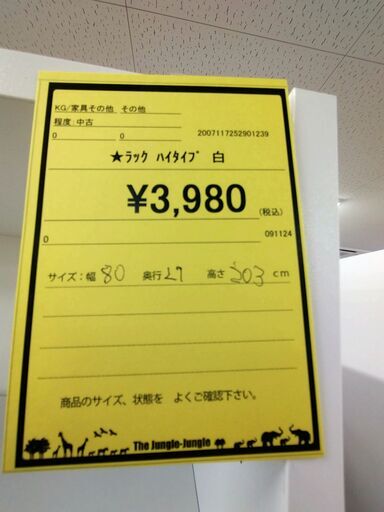 KG/家具その他 その他
程度:中古
0 0 2007117252901239
★ラック ハイタイプ 白
¥3,980 (税込)
0 091124
サイズ:幅 80 奥行 29 高さ 203 cm
商品のサイズ、状態を よくご確認下さい。
The Jungle-Jungle